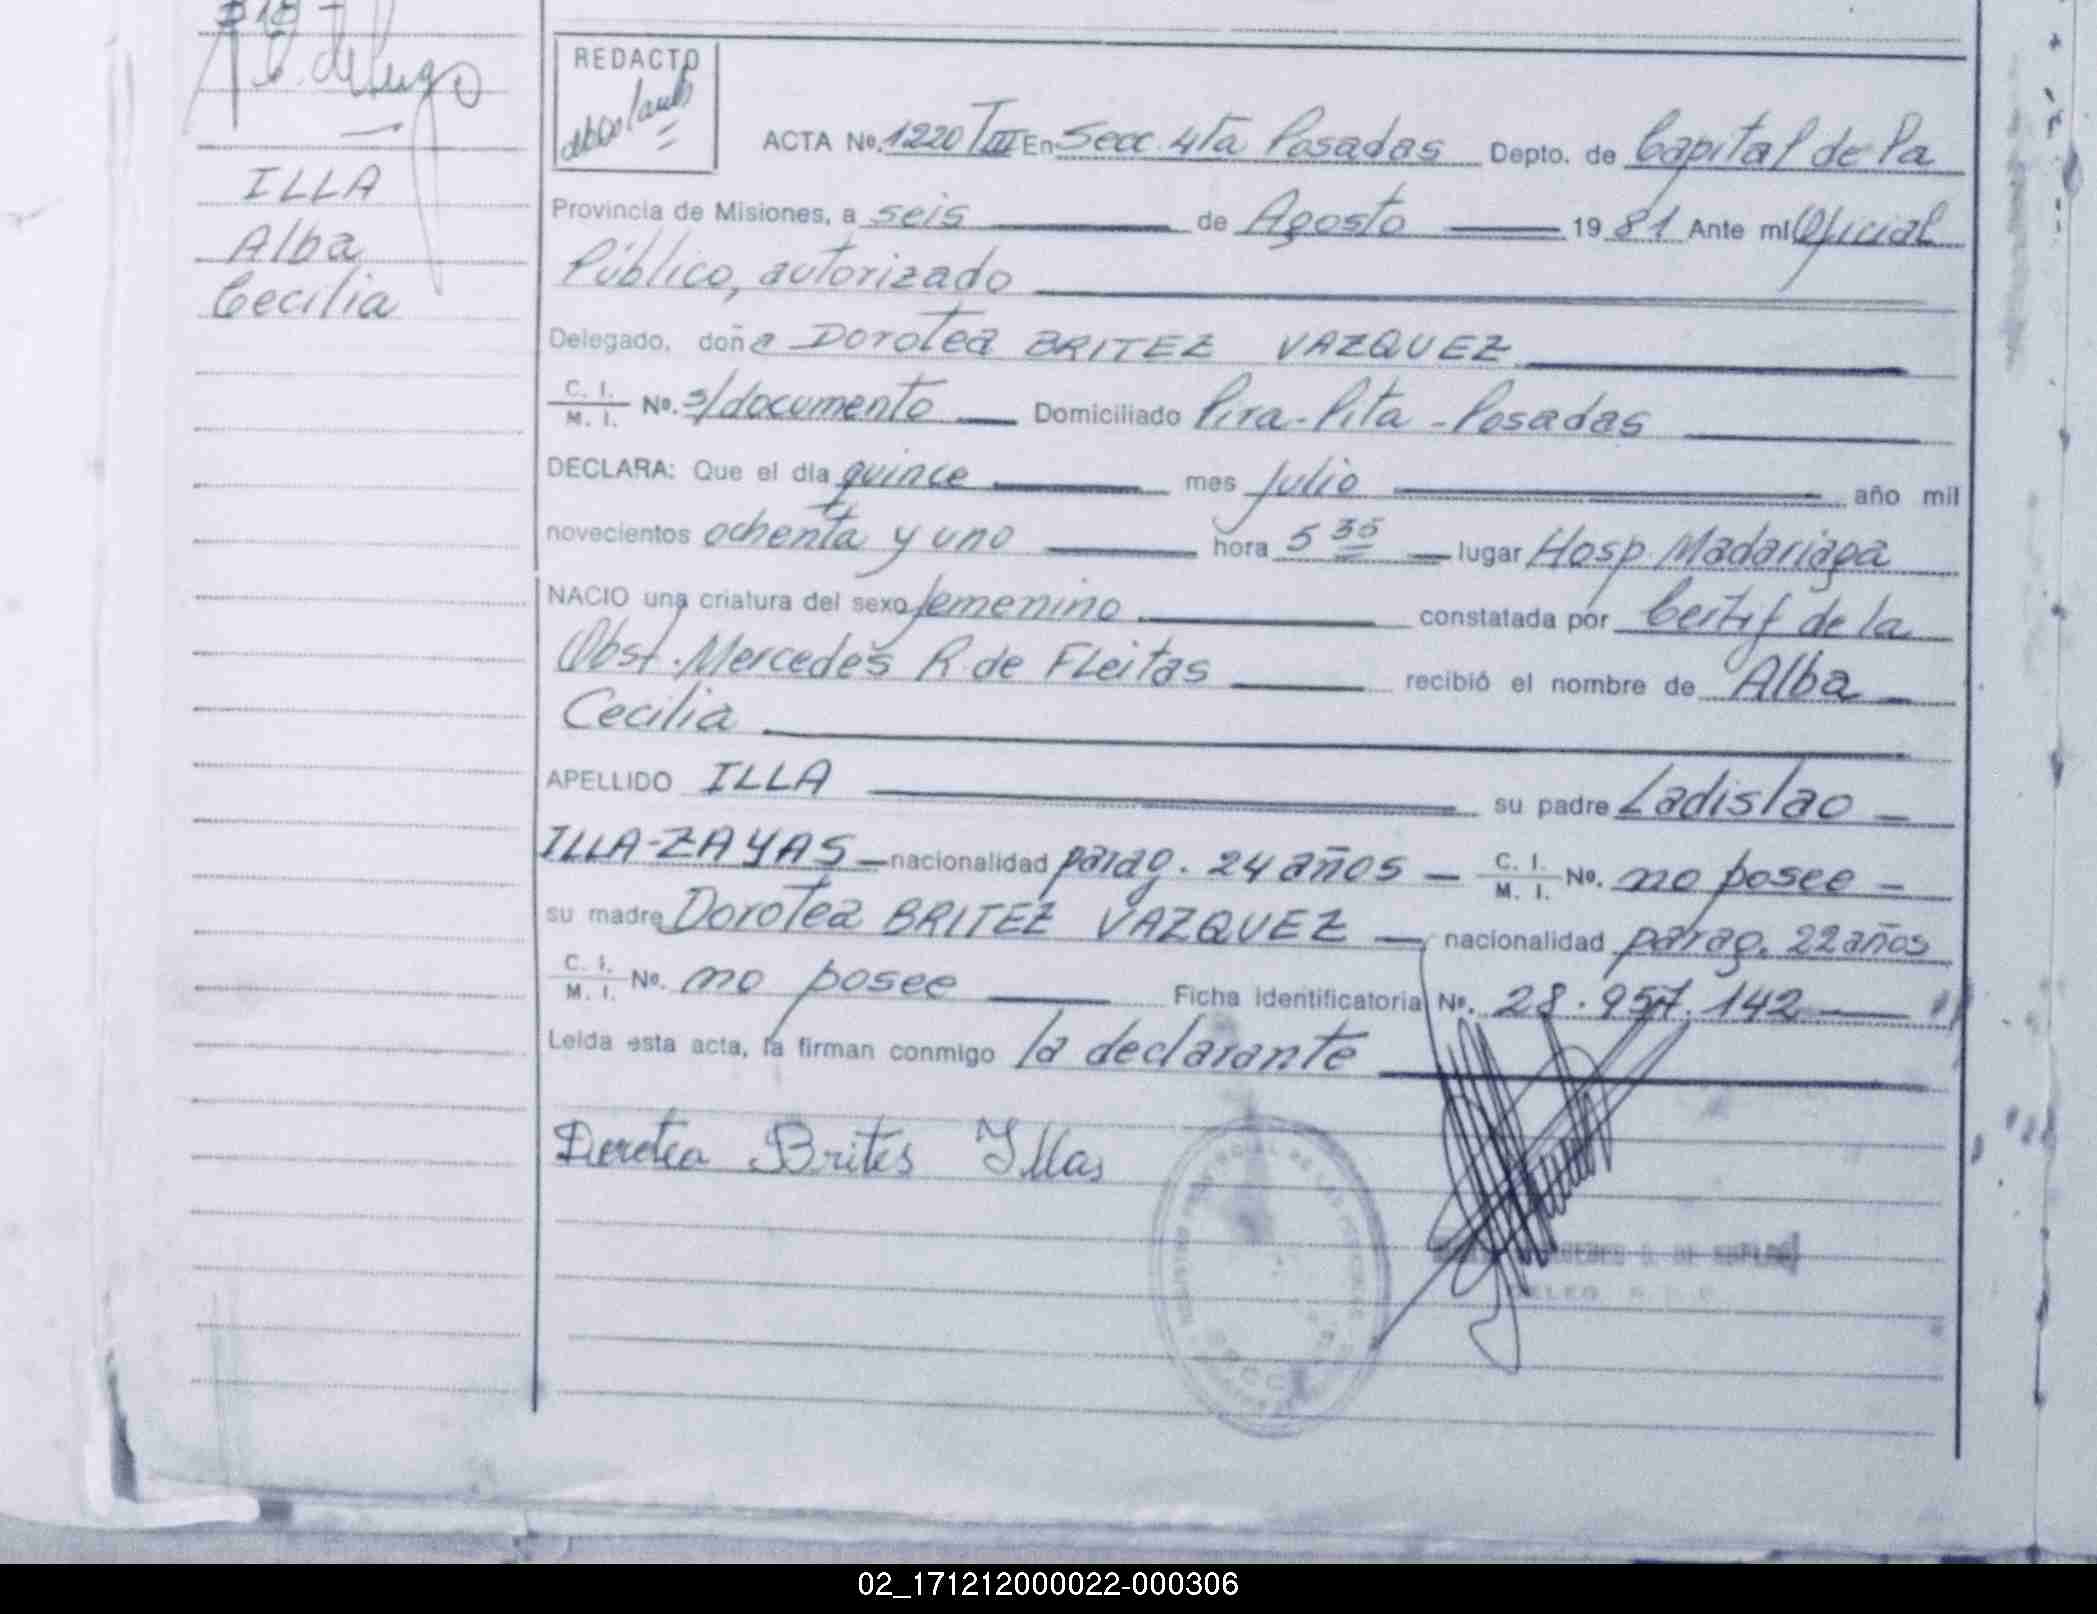 ILLA
Alba
Cecilia
REDACTO
ACTA Nº. 1220 TIII En Secc. 4ta Posadas Depto. de Capital de la
Provincia de Misiones, a seis de Agosto 19 81 Ante mí Oficial
Público, autorizado
Delegado, doña Dorotea BRITEZ VAZQUEZ
C. I.
M. I. Nº. s/documento Domiciliado Pira-Pita - Posadas
DECLARA: Que el día quince mes Julio año mil
novecientos ochenta y uno hora 5 35 lugar Hosp. Madariaga
NACIO una criatura del sexo femenino constatada por Certif de la
Obst. Mercedes R. de Fleitas recibió el nombre de Alba
Cecilia
APELLIDO ILLA su padre Ladislao
ILLA-ZAYAS nacionalidad parag. 24 años C. I.
M. I. Nº. no posee
su madre Dorotea BRITEZ VAZQUEZ nacionalidad parag. 22 años
C. I.
M. I. Nº. no posee Ficha identificatoria Nº. 28.957.142
Leída esta acta, la firman conmigo la declarante
Dorotea Brites Illas
02_171212000022-000306